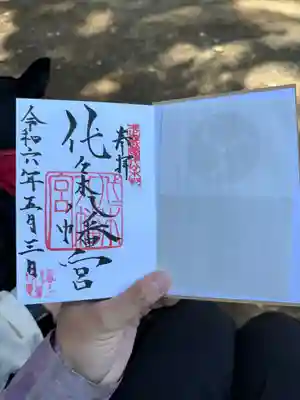 奉拝
代々木八幡宮
代々木
八幡
宮印
令和六年五月三日